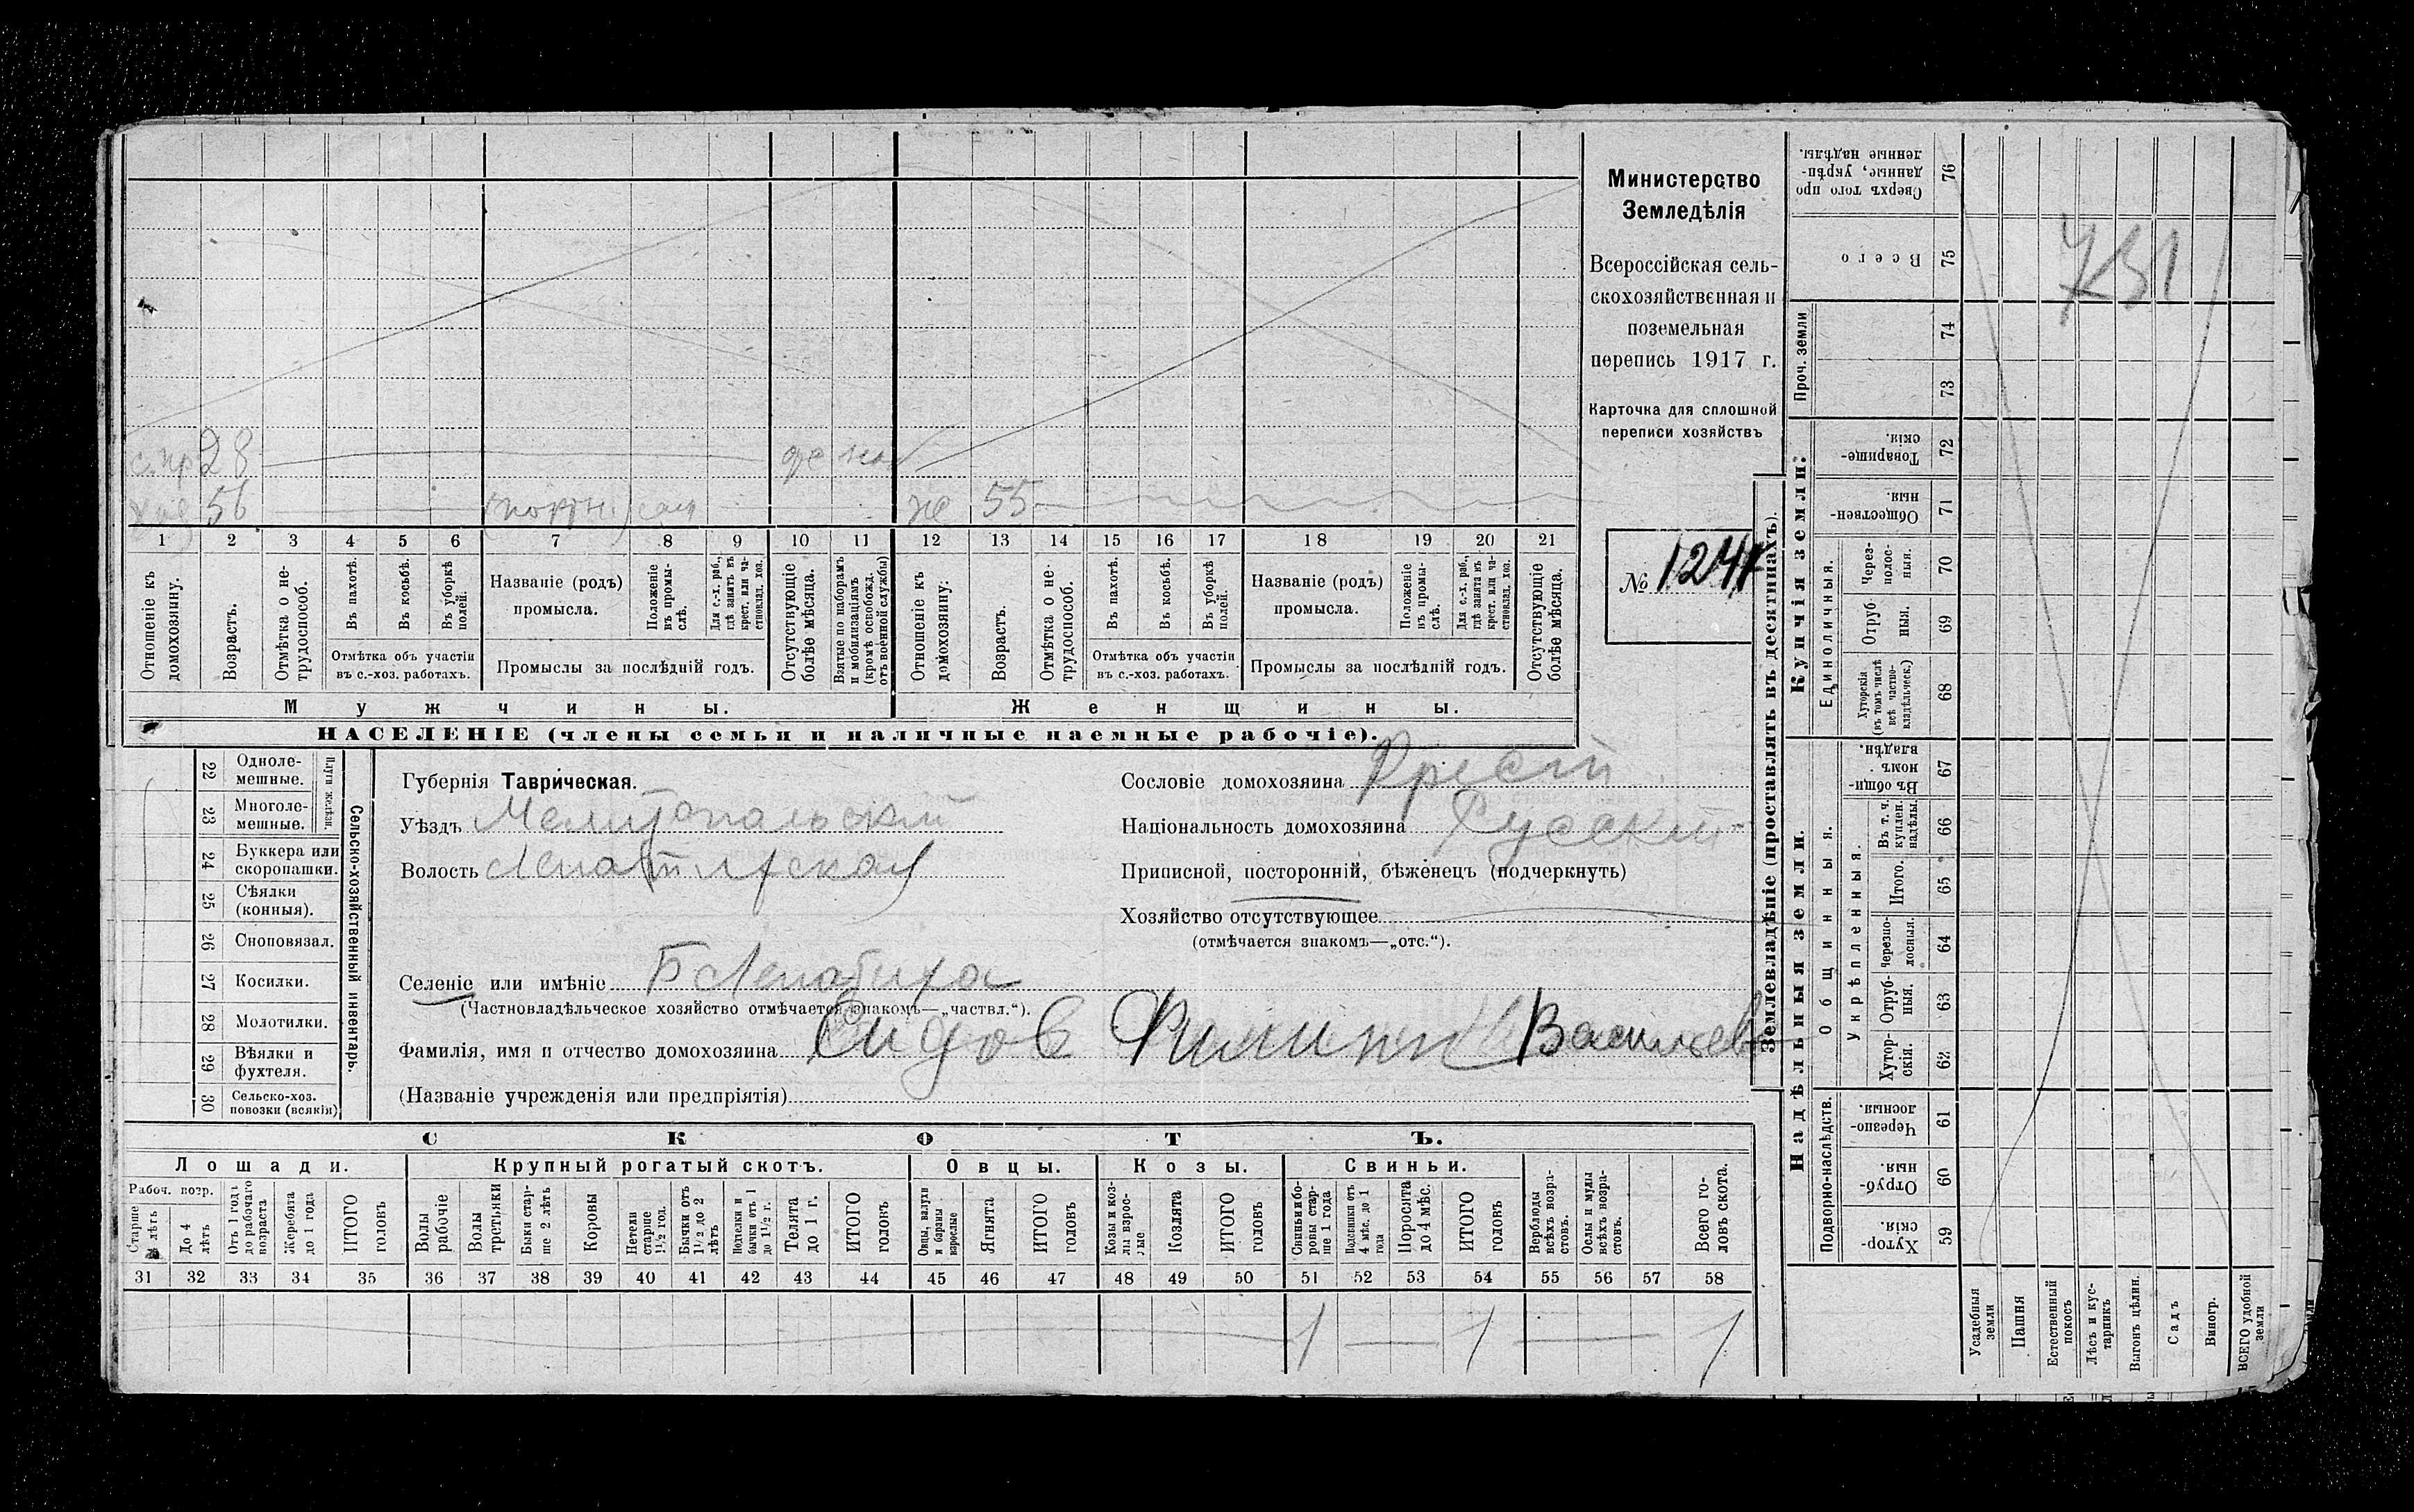 28
56
же 55
1 2 3 4 5 6 7 8 9 10 11 12 13 14 15 16 17 18 19 20 21
Отношеніе къ домохозяину.
Возрастъ.
Отмѣтка о не-трудоспособ.
Въ пахотѣ.
Въ косьбѣ.
Въ уборкѣ полей.
Отмѣтка объ участіи
въ с.-хоз. работахъ.
Названіе (родъ)
промысла.
Положеніе въ промы-слѣ.
Для с.-х. раб., гдѣ занятъ въ крест. или ча-стновлад. хоз.
Промыслы за послѣдній годъ.
Отсутствующіе болѣе мѣсяца.
Взятые по наборамъ и мобилизаціямъ (кромѣ освобожд. отъ военной службы)
Отношеніе къ домохозяину:
Возрастъ.
Отмѣтка о не-трудоспособ.
Въ пахотѣ.
Въ косьбѣ.
Въ уборкѣ полей.
Отмѣтка объ участіи
въ с.-хоз. работахъ.
Названіе (родъ)
промысла.
Положеніе въ промы-слѣ.
Для с.-х. раб., гдѣ занята въ крест. или ча-стновлад. хоз.
Промыслы за послѣдній годъ.
Отсутствующіе болѣе мѣсяца.
Мужчины. Женщины.
НАСЕЛЕНІЕ (члены семьи и наличные наемные рабочіе).
Министерство
Земледѣлія
Всероссійская сель-
скохозяйственная и
поземельная
перепись 1917 г.
Карточка для сплошной
переписи хозяйствъ
№ 1241
22 Одноле-мешные.
23 Многоле-мешные.
Плуги желѣзн.
24 Буккера или скоропашки.
25 Сѣялки (конныя).
26 Сноповязал.
27 Косилки.
28 Молотилки.
29 Вѣялки и фухтеля.
30 Сельско-хоз. повозки (всякія)
Сельско-хозяйственный инвентарь.
Губернія Таврическая.
Уѣздъ Мелитопольский
Волость Лепатихская
Селеніе или имѣніе Б Лепатиха
(Частновладѣльческое хозяйство отмѣчается знакомъ—„частвл.“).
Фамилія, имя и отчество домохозяина Сидов Филипп Васильев
(Названіе учрежденія или предпріятія)
Сословіе домохозяина Крест
Національность домохозяина Русский
Приписной, посторонній, бѣженецъ (подчеркнуть)
Хозяйство отсутствующее
(отмѣчается знакомъ—„отс.“).
СКОТЪ.
Лошади. Крупный рогатый скотъ. Овцы. Козы. Свиньи.
Рабоч. возр.
Старше 4 лѣтъ
До 4 лѣтъ
Отъ 1 года до рабочаго возраста
Жеребята до 1 года
ИТОГО головъ
Волы рабочіе
Волы третьяки
Быки стар-ше 2 лѣтъ
Коровы
Нетели старше 1½ год.
Бычки отъ 1½ до 2 лѣтъ
Подтелки и бычки отъ 1 до 1½ г.
Телята до 1 г.
ИТОГО головъ
Овцы, валухи и бараны взрослые
Ягнята
ИТОГО головъ
Козы и коз-лы взрос-лые
Козлята
ИТОГО головъ
Свиньи и бо-ровы стар-ше 1 года
Подсвинки отъ 4 мѣс. до 1 года
Поросята до 4 мѣс.
ИТОГО головъ
Верблюды всѣхъ возра-стовъ.
Ослы и мулы всѣхъ возра-стовъ.
Всего го-ловъ скота.
31 32 33 34 35 36 37 38 39 40 41 42 43 44 45 46 47 48 49 50 51 52 53 54 55 56 57 58
1 — 1 — 1
Землевладѣніе (проставлять въ десятинахъ).
Надѣльныя земли. Купчія земли:
Подворно-наслѣдств.
Общинныя.
Укрѣпленныя.
Единоличныя.
Проч. земли
Сверхъ того про данные, укрѣп-ленные надѣлы. 76
Всего 75
74
73
Товарище-скія. 72
Обществен-ныя. 71
Через-полос-ныя. 70
Отруб-ныя. 69
Хуторскія (въ томъ числѣ всѣ частно-владѣльческ.) 68
Въ общи-номъ владѣн. 67
Въ т. ч. куплен. надѣлы. 66
Итого. 65
Черезпо-лосныя. 64
Отруб-ныя. 63
Хутор-скія. 62
Черезпо-лосныя. 61
Отруб-ныя. 60
Хутор-скія. 59
Усадебныя земли
Пашня
Естественный покосъ
Лѣсъ и кус-тарникъ
Выгонъ цѣлин.
Садъ
Виногр.
ВСЕГО удобной земли